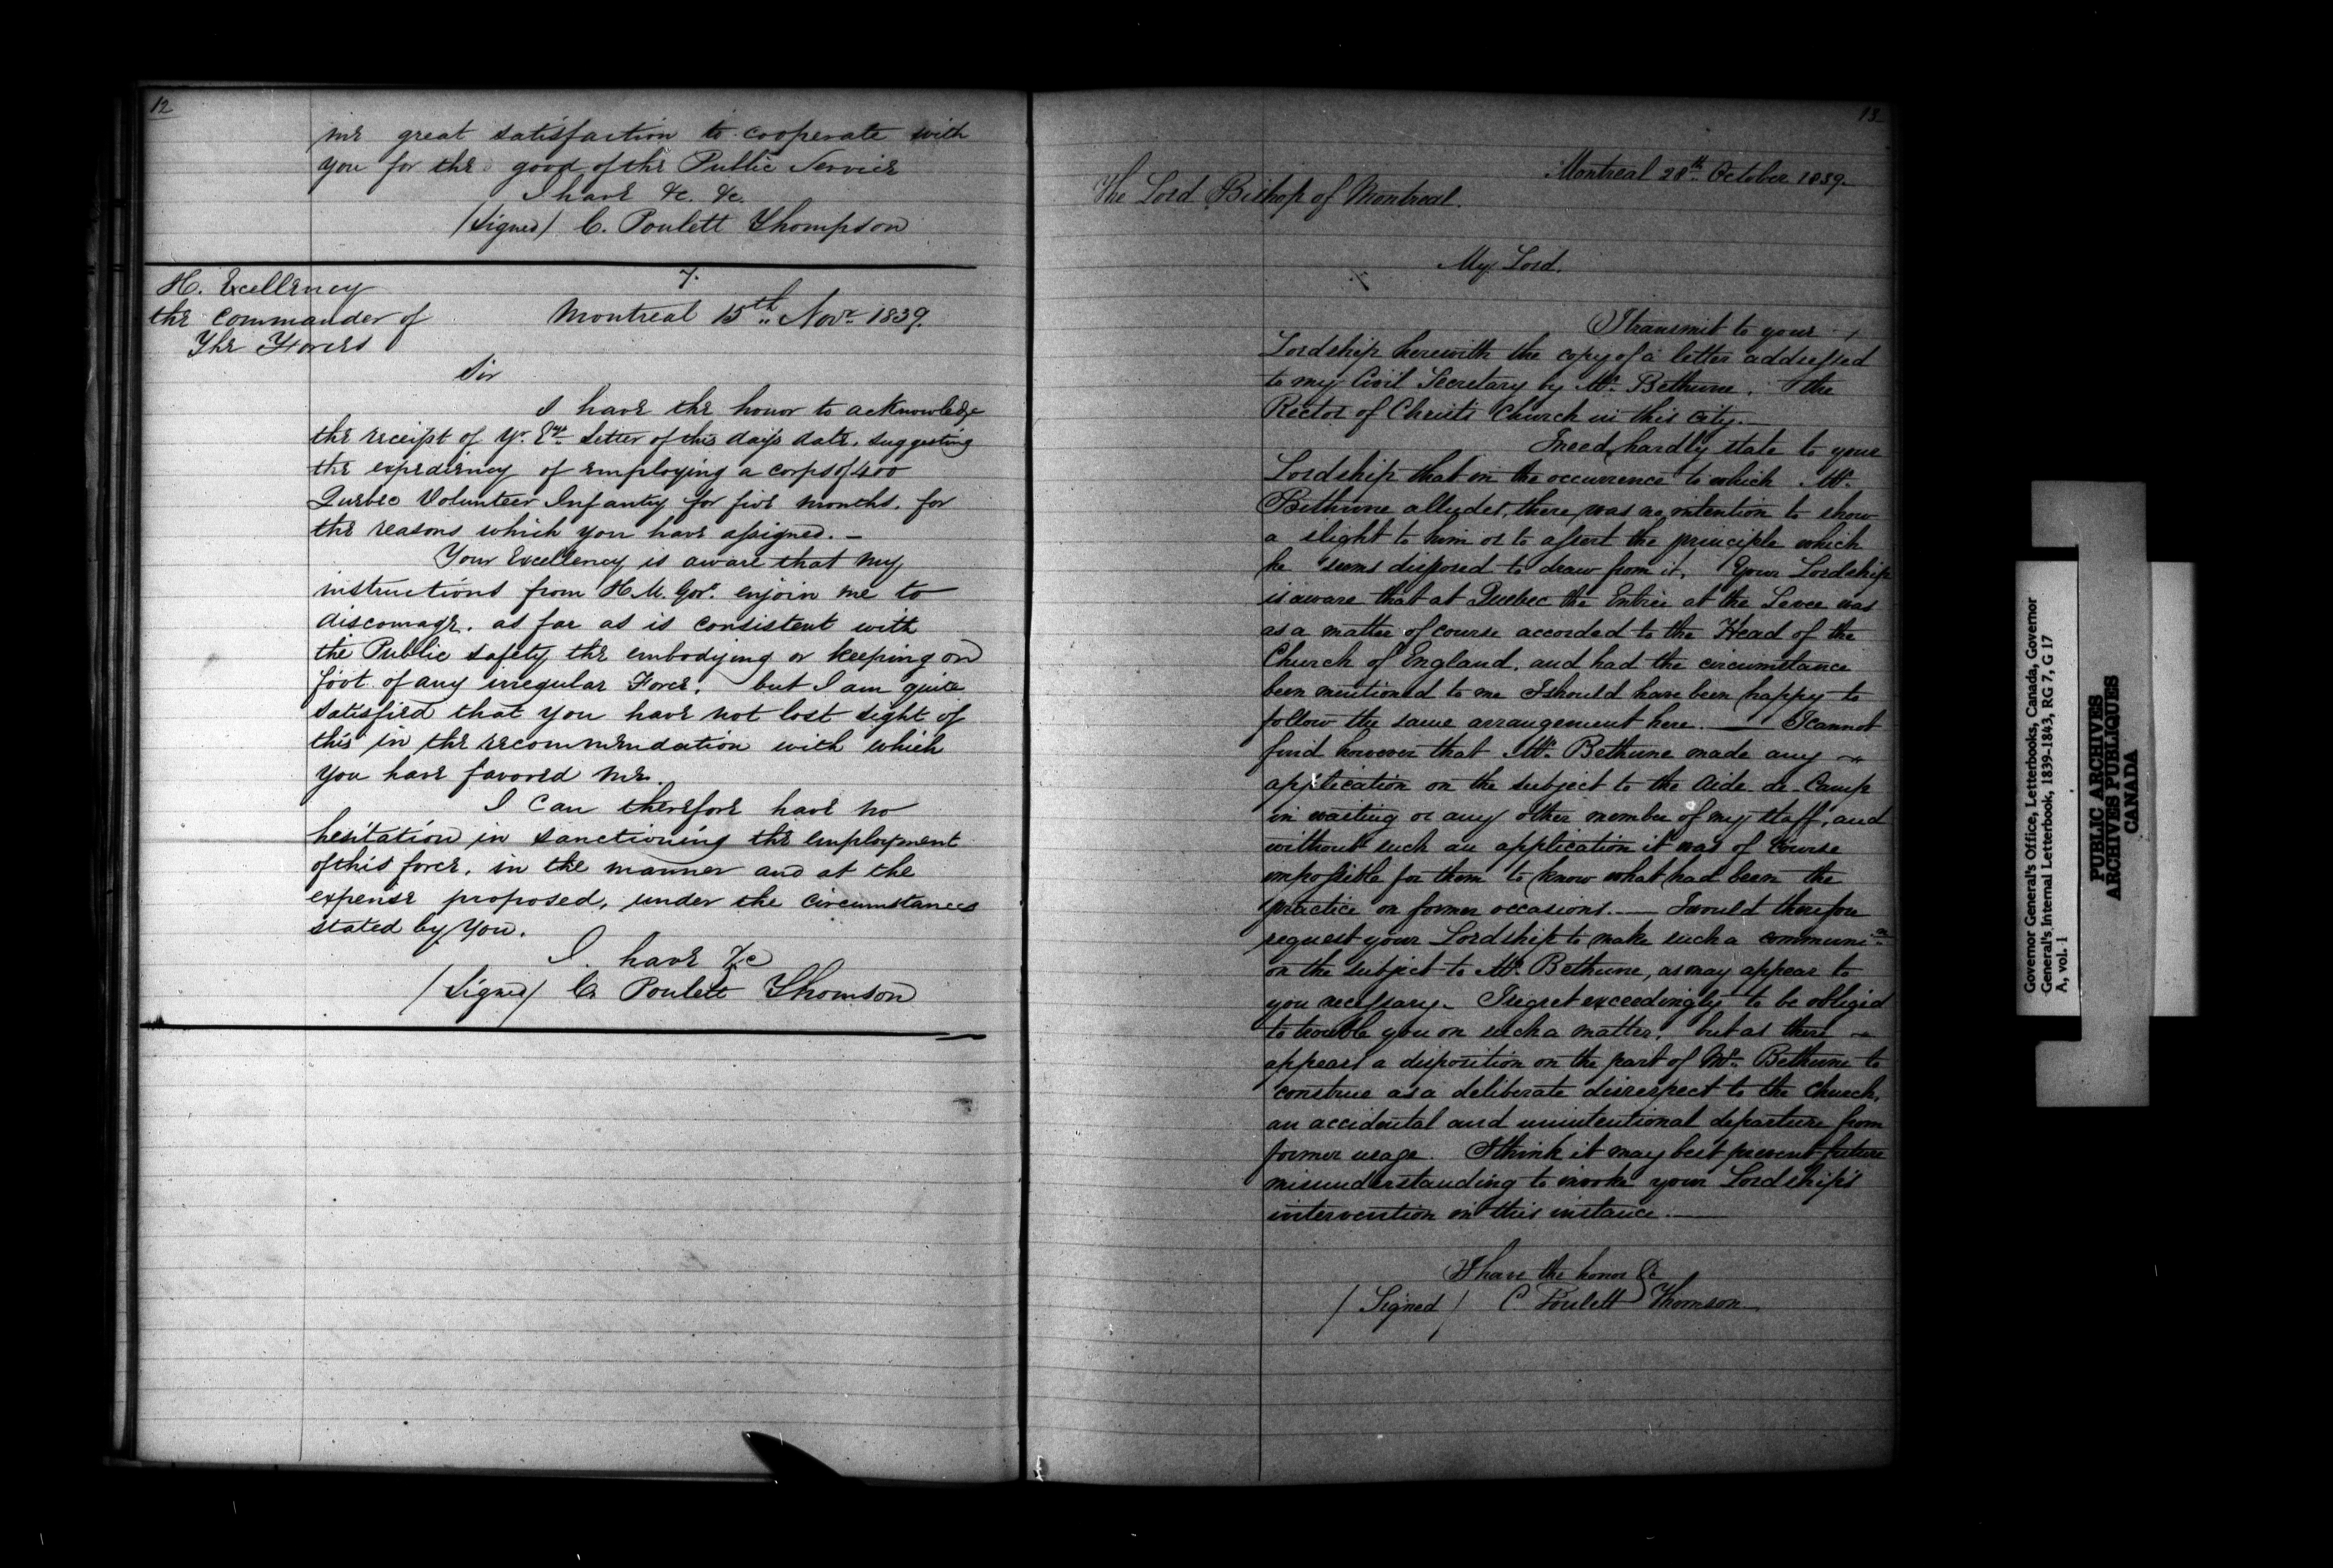 12
me great satisfaction to cooperate with
you for the good of the Public Service
I have &c. &c.
/Signed/ C. Poulett Thompson
H. Excellency
the Commander of
The Forces
7.
Montreal 15th Novr 1839.
Sir
I have the honor to acknowledge
the receipt of Yr. Ey. Letter of this day's date, suggesting
the expediency of employing a corps of 400
Quebec Volunteer Infantry for five months, for
the reasons which you have assigned. —
Your Excellency is aware that my
instructions from H. M. Govt. enjoin me to
discourage, as far as is consistent with
the Public safety the embodying or keeping on
foot of any irregular Force, but I am quite
satisfied that you have not lost sight of
this in the recommendation with which
you have favored me.
I Can therefore have no
hesitation in sanctioning the employment
of this force, in the manner and at the
expense proposed, under the circumstances
stated by You.
I have &c
/Signed/ C. Poulett Thomson
13
Montreal 28th October 1839.
The Lord Bishop of Montreal.
My Lord.
I transmit to your
Lordship herewith the copy of a letter addressed
to my Civil Secretary by Mr. Bethune, the
Rector of Christ's Church in this City. —
I need hardly state to your
Lordship that on the occurrence to which Mr.
Bethune alludes, there was no intention to show
a slight to him or to assert the principle which
he seems disposed to draw from it. Your Lordship
is aware that at Quebec the Entrée at the Levee was
as a matter of course accorded to the Head of the
Church of England, and had the circumstance
been mentioned to me I should have been happy to
follow the same arrangement here. — I cannot
find however that Mr. Bethune made any
application on the subject to the Aide-de-Camp
in waiting or any other member of my staff, and
without such an application it was of course
impossible for them to know what had been the
practice on former occasions. — I would therefore
request your Lordship to make such a communion
on the subject to Mr. Bethune, as may appear to
you necessary. I regret exceedingly to be obliged
to trouble you on such a matter, but as there
appears a disposition on the part of Mr. Bethune to
construe as a deliberate disrespect to the Church,
an accidental and unintentional departure from
former usage. I think it may best prevent future
misunderstanding to invoke your Lordship's
intervention in this instance. —
I have the honor &c
/Signed/ C Poulett Thomson
Governor General's Office, Letterbooks, Canada, Governor
General's Internal Letterbook, 1839-1843, RG 7, G 17
A, vol. 1
PUBLIC ARCHIVES
ARCHIVES PUBLIQUES
CANADA